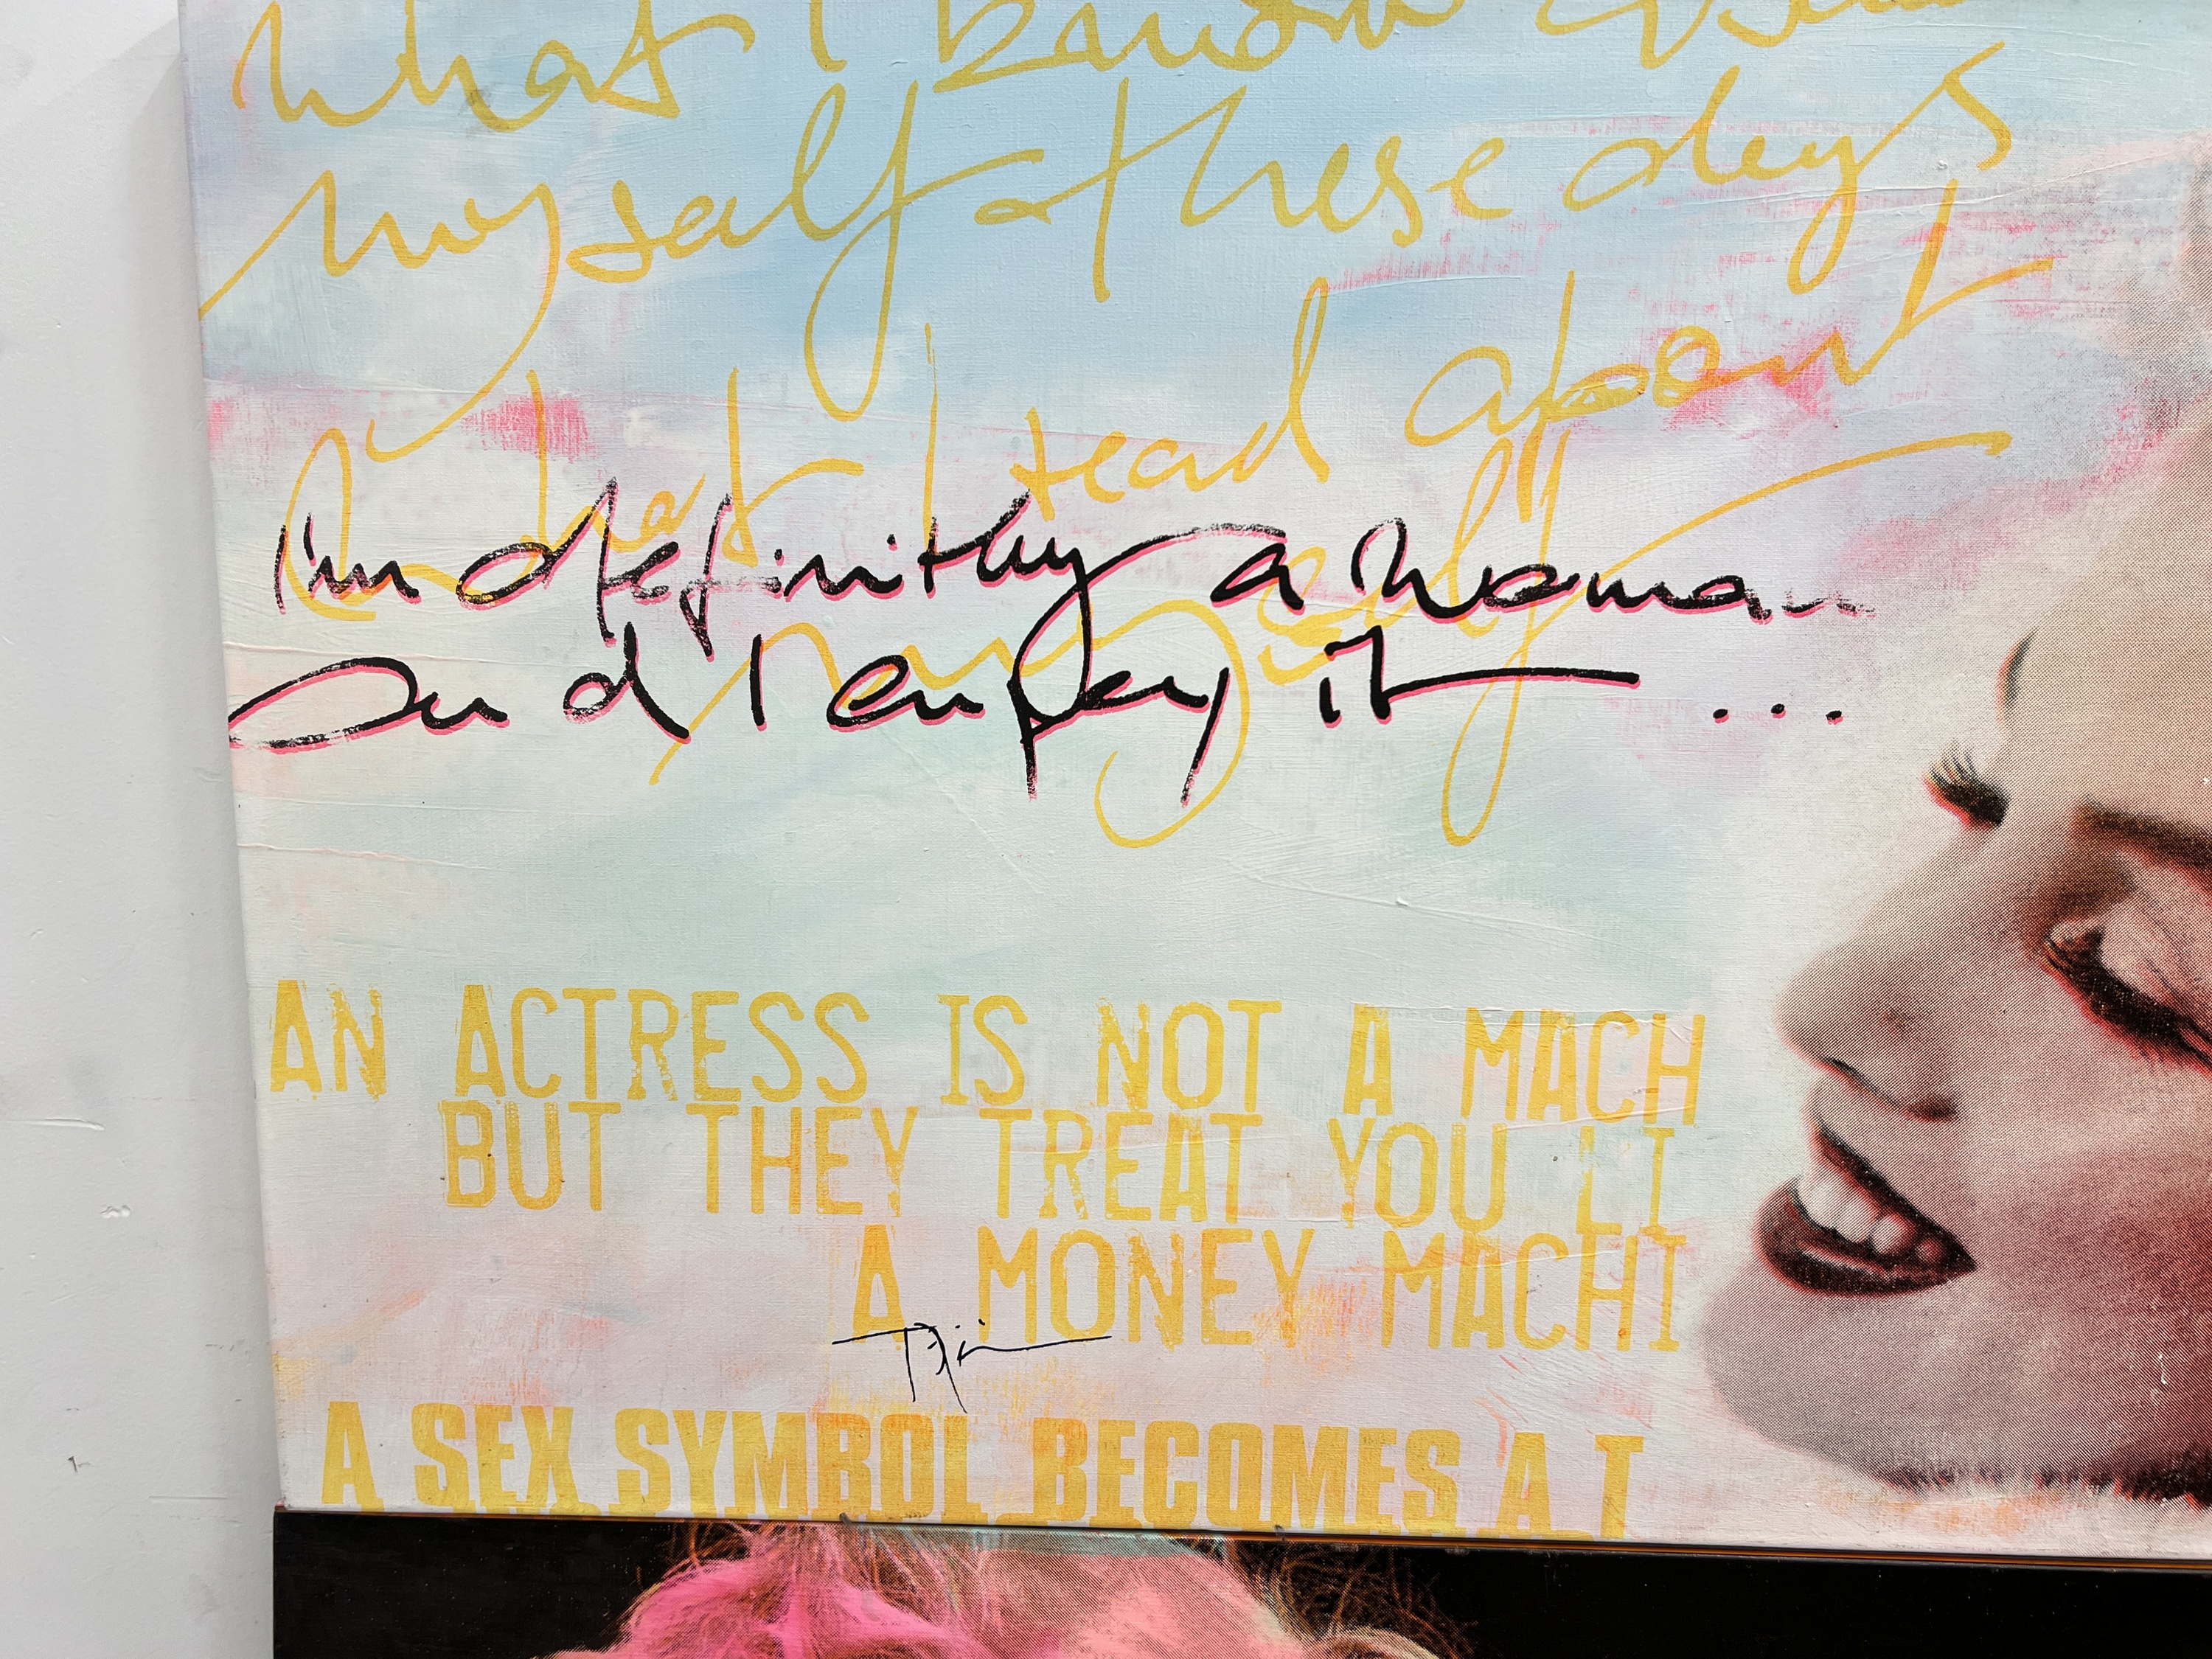 what I know
myself these days
what I read about
myself
I'm definitly a woman
and I enjoy it ...
AN ACTRESS IS NOT A MACH
BUT THEY TREAT YOU LI
A MONEY MACHI
A SEX SYMBOL BECOMES A T